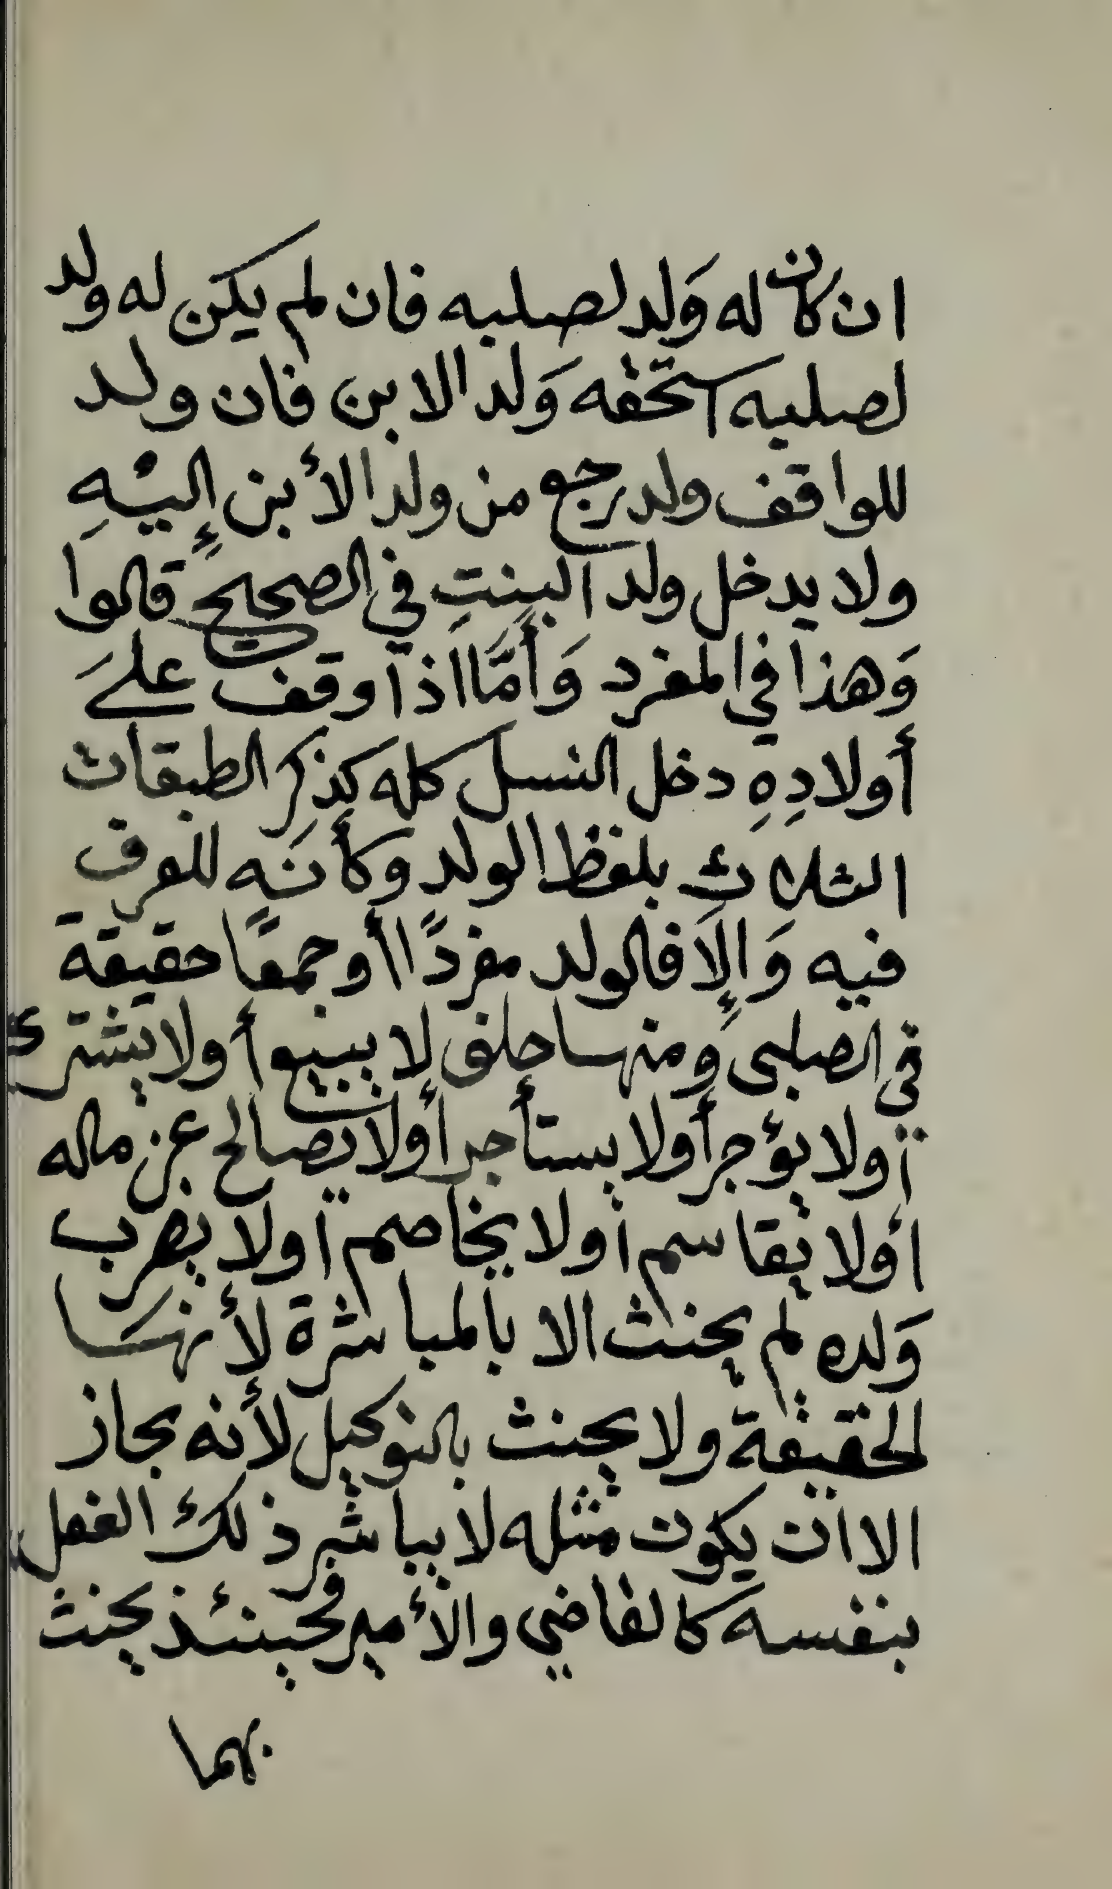 ان كان له وَلد لصلبه فان لم يكن له ولد
لصلبه استحقه وَلد الابن فان ولد
للواقف ولد رجع من ولد الأبن إليْهِ
ولا يدخل ولد البنتِ في الصحيح قالوا
وَهذا في المفرد وَأمَّا اذا أوقف علىَ
أولادِهِ دخل النسل كله كذكر الطبقات
الثلاث بلفظ الولد وكأنَه للعرف
فيه وَإلا فالولد مفردًا أو جمعًا حقيقة
في الصلبى وَمنها حلف لا يبيع أو لا يشترى
أو لا يؤجر أو لا يستأجر أو لا يصالح عن ماله
أو لا يقاسم أو لا يخاصم أو لا يضرب
وَلده لم يحنث الا بالمباشرة لأنهَا
الحقيقة ولا يحنث بالتوكيل لأنه مجاز
الا ان يكون مثله لا يباشر ذلك الفعل
بنفسه كالقاضي والأمير فحينئذ يحنث
بهما